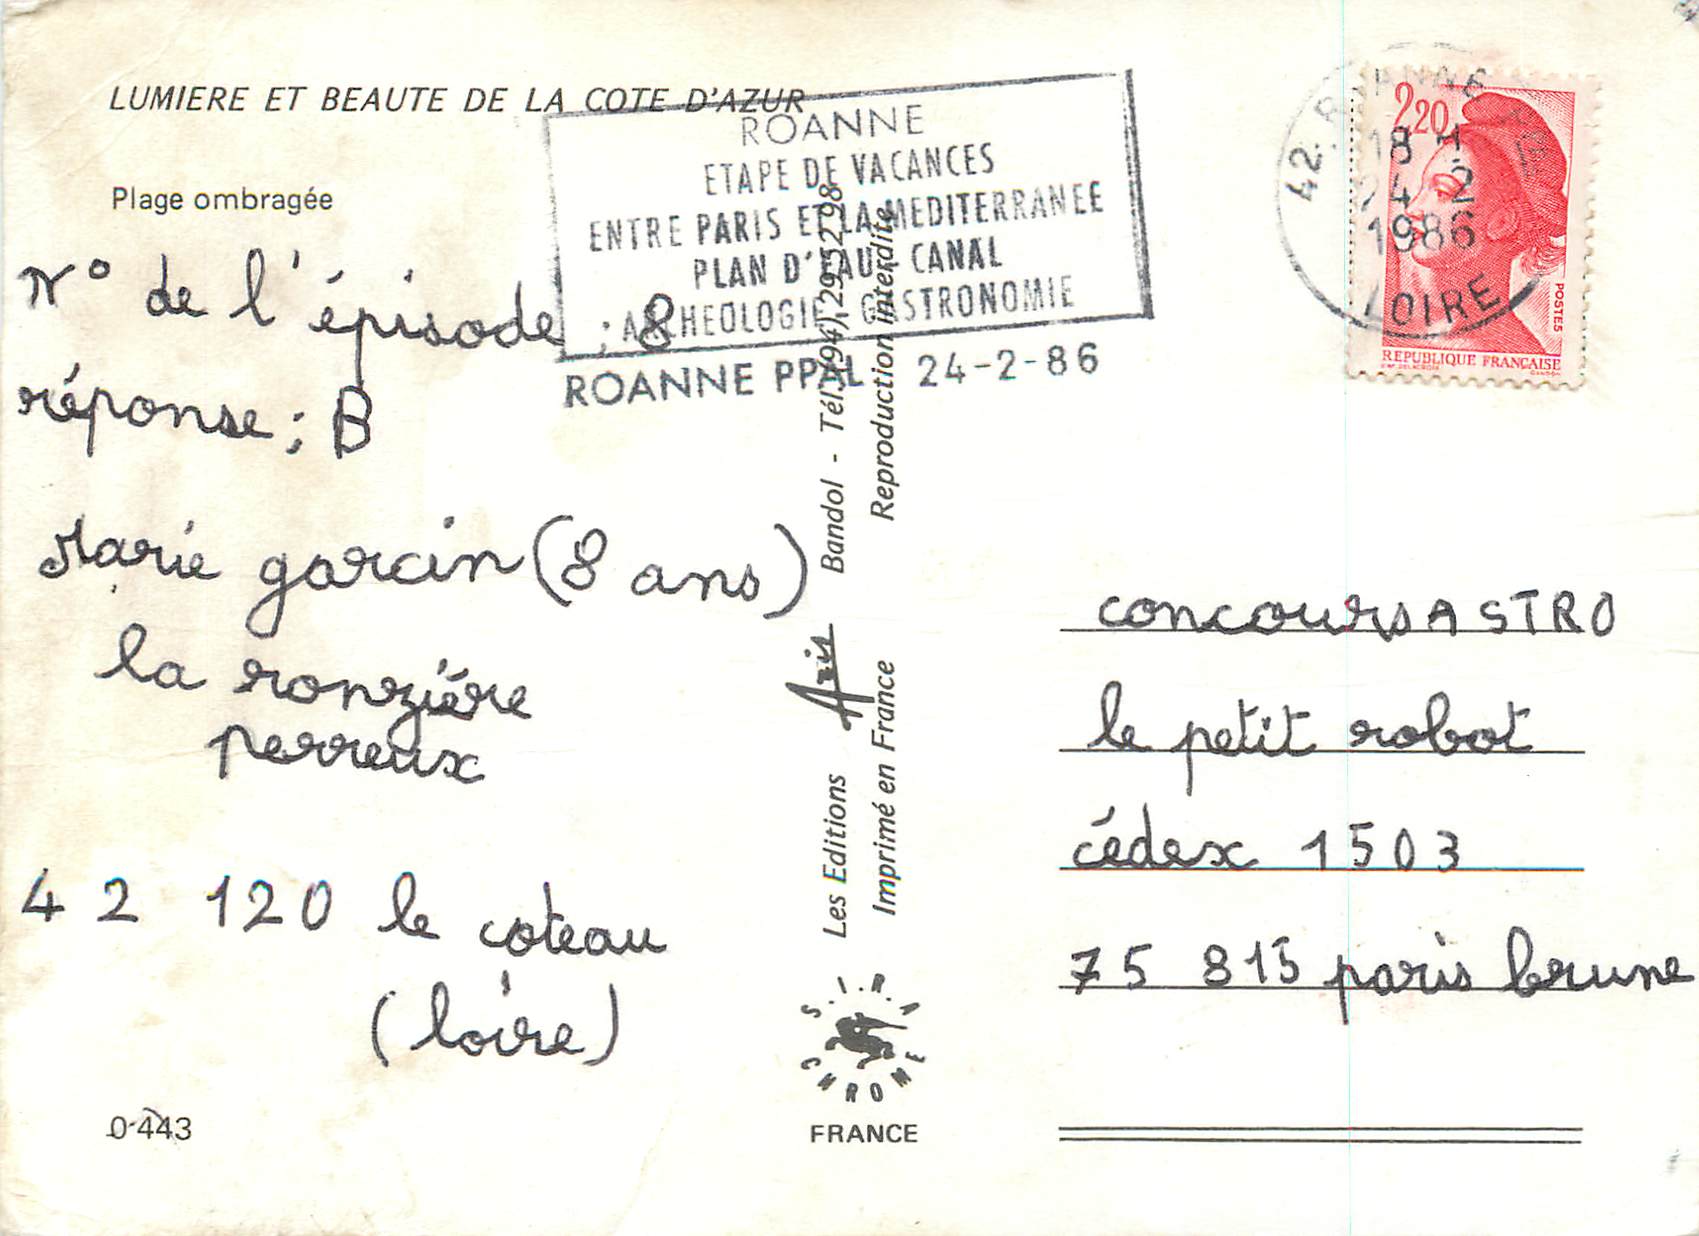 LUMIERE ET BEAUTE DE LA COTE D'AZUR
Plage ombragée
ROANNE
ETAPE DE VACANCES
ENTRE PARIS ET LA MEDITERRANEE
PLAN D'EAU - CANAL
ARCHEOLOGIE GASTRONOMIE
ROANNE PPAL 24-2-86
42 ROANNE
18 H
24 2
1986
LOIRE
2,20
POSTES
REPUBLIQUE FRANÇAISE
N° de l'épisode : 8
réponse : B
Marie garcin (8 ans)
la ronzière
perreux
42 120 le coteau
(loire)
0-443
Les Editions Aris Bandol - Tél. (94) 29 52 98
Imprimé en France Reproduction interdite
S.I.R.A
CHROME
FRANCE
concours ASTRO
le petit robot
cédex 1503
75 815 paris brune